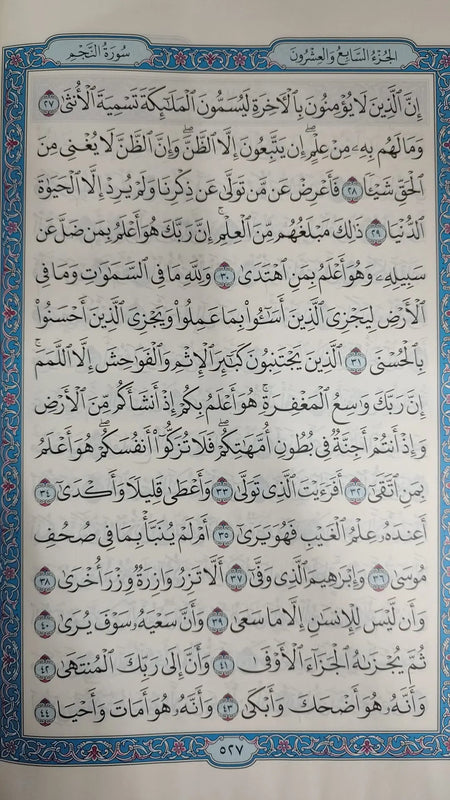 سُورَةُ النَّجْمِ
الجُزْءُ السَّابِعُ وَالعِشْرُونَ
إِنَّ ٱلَّذِينَ لَا يُؤْمِنُونَ بِٱلْأَخِرَةِ لَيُسَمُّونَ ٱلْمَلَـٰٓئِكَةَ تَسْمِيَةَ ٱلْأُنثَىٰ ٢٧
وَمَا لَهُم بِهِۦ مِنْ عِلْمٍ ۖ إِن يَتَّبِعُونَ إِلَّا ٱلظَّنَّ ۖ وَإِنَّ ٱلظَّنَّ لَا يُغْنِى مِنَ
ٱلْحَقِّ شَيْـًٔا ٢٨ فَأَعْرِضْ عَن مَّن تَوَلَّىٰ عَن ذِكْرِنَا وَلَمْ يُرِدْ إِلَّا ٱلْحَيَوٰةَ
ٱلدُّنْيَا ٢٩ ذَٰلِكَ مَبْلَغُهُم مِّنَ ٱلْعِلْمِ ۚ إِنَّ رَبَّكَ هُوَ أَعْلَمُ بِمَن ضَلَّ عَن
سَبِيلِهِۦ وَهُوَ أَعْلَمُ بِمَنِ ٱهْتَدَىٰ ٣٠ وَلِلَّهِ مَا فِى ٱلسَّمَـٰوَٰتِ وَمَا فِى
ٱلْأَرْضِ لِيَجْزِىَ ٱلَّذِينَ أَسَـٰٓـُٔوا۟ بِمَا عَمِلُوا۟ وَيَجْزِىَ ٱلَّذِينَ أَحْسَنُوا۟
بِٱلْحُسْنَى ٣١ ٱلَّذِينَ يَجْتَنِبُونَ كَبَـٰٓئِرَ ٱلْإِثْمِ وَٱلْفَوَٰحِشَ إِلَّا ٱللَّمَمَ ۚ
إِنَّ رَبَّكَ وَٰسِعُ ٱلْمَغْفِرَةِ ۚ هُوَ أَعْلَمُ بِكُمْ إِذْ أَنشَأَكُم مِّنَ ٱلْأَرْضِ
وَإِذْ أَنتُمْ أَجِنَّةٌ فِى بُطُونِ أُمَّهَـٰتِكُمْ ۖ فَلَا تُزَكُّوٓا۟ أَنفُسَكُمْ ۖ هُوَ أَعْلَمُ
بِمَنِ ٱتَّقَىٰٓ ٣٢ أَفَرَءَيْتَ ٱلَّذِى تَوَلَّىٰ ٣٣ وَأَعْطَىٰ قَلِيلًا وَأَكْدَىٰٓ ٣٤
أَعِندَهُۥ عِلْمُ ٱلْغَيْبِ فَهُوَ يَرَىٰٓ ٣٥ أَمْ لَمْ يُنَبَّأْ بِمَا فِى صُحُفِ
مُوسَىٰ ٣٦ وَإِبْرَٰهِيمَ ٱلَّذِى وَفَّىٰٓ ٣٧ أَلَّا تَزِرُ وَازِرَةٌ وِزْرَ أُخْرَىٰ ٣٨
وَأَن لَّيْسَ لِلْإِنسَـٰنِ إِلَّا مَا سَعَىٰ ٣٩ وَأَنَّ سَعْيَهُۥ سَوْفَ يُرَىٰ ٤٠
ثُمَّ يُجْزَىٰهُ ٱلْجَزَآءَ ٱلْأَوْفَىٰ ٤١ وَأَنَّ إِلَىٰ رَبِّكَ ٱلْمُنتَهَىٰ ٤٢
وَأَنَّهُۥ هُوَ أَضْحَكَ وَأَبْكَىٰ ٤٣ وَأَنَّهُۥ هُوَ أَمَاتَ وَأَحْيَا ٤٤
٥٢٧